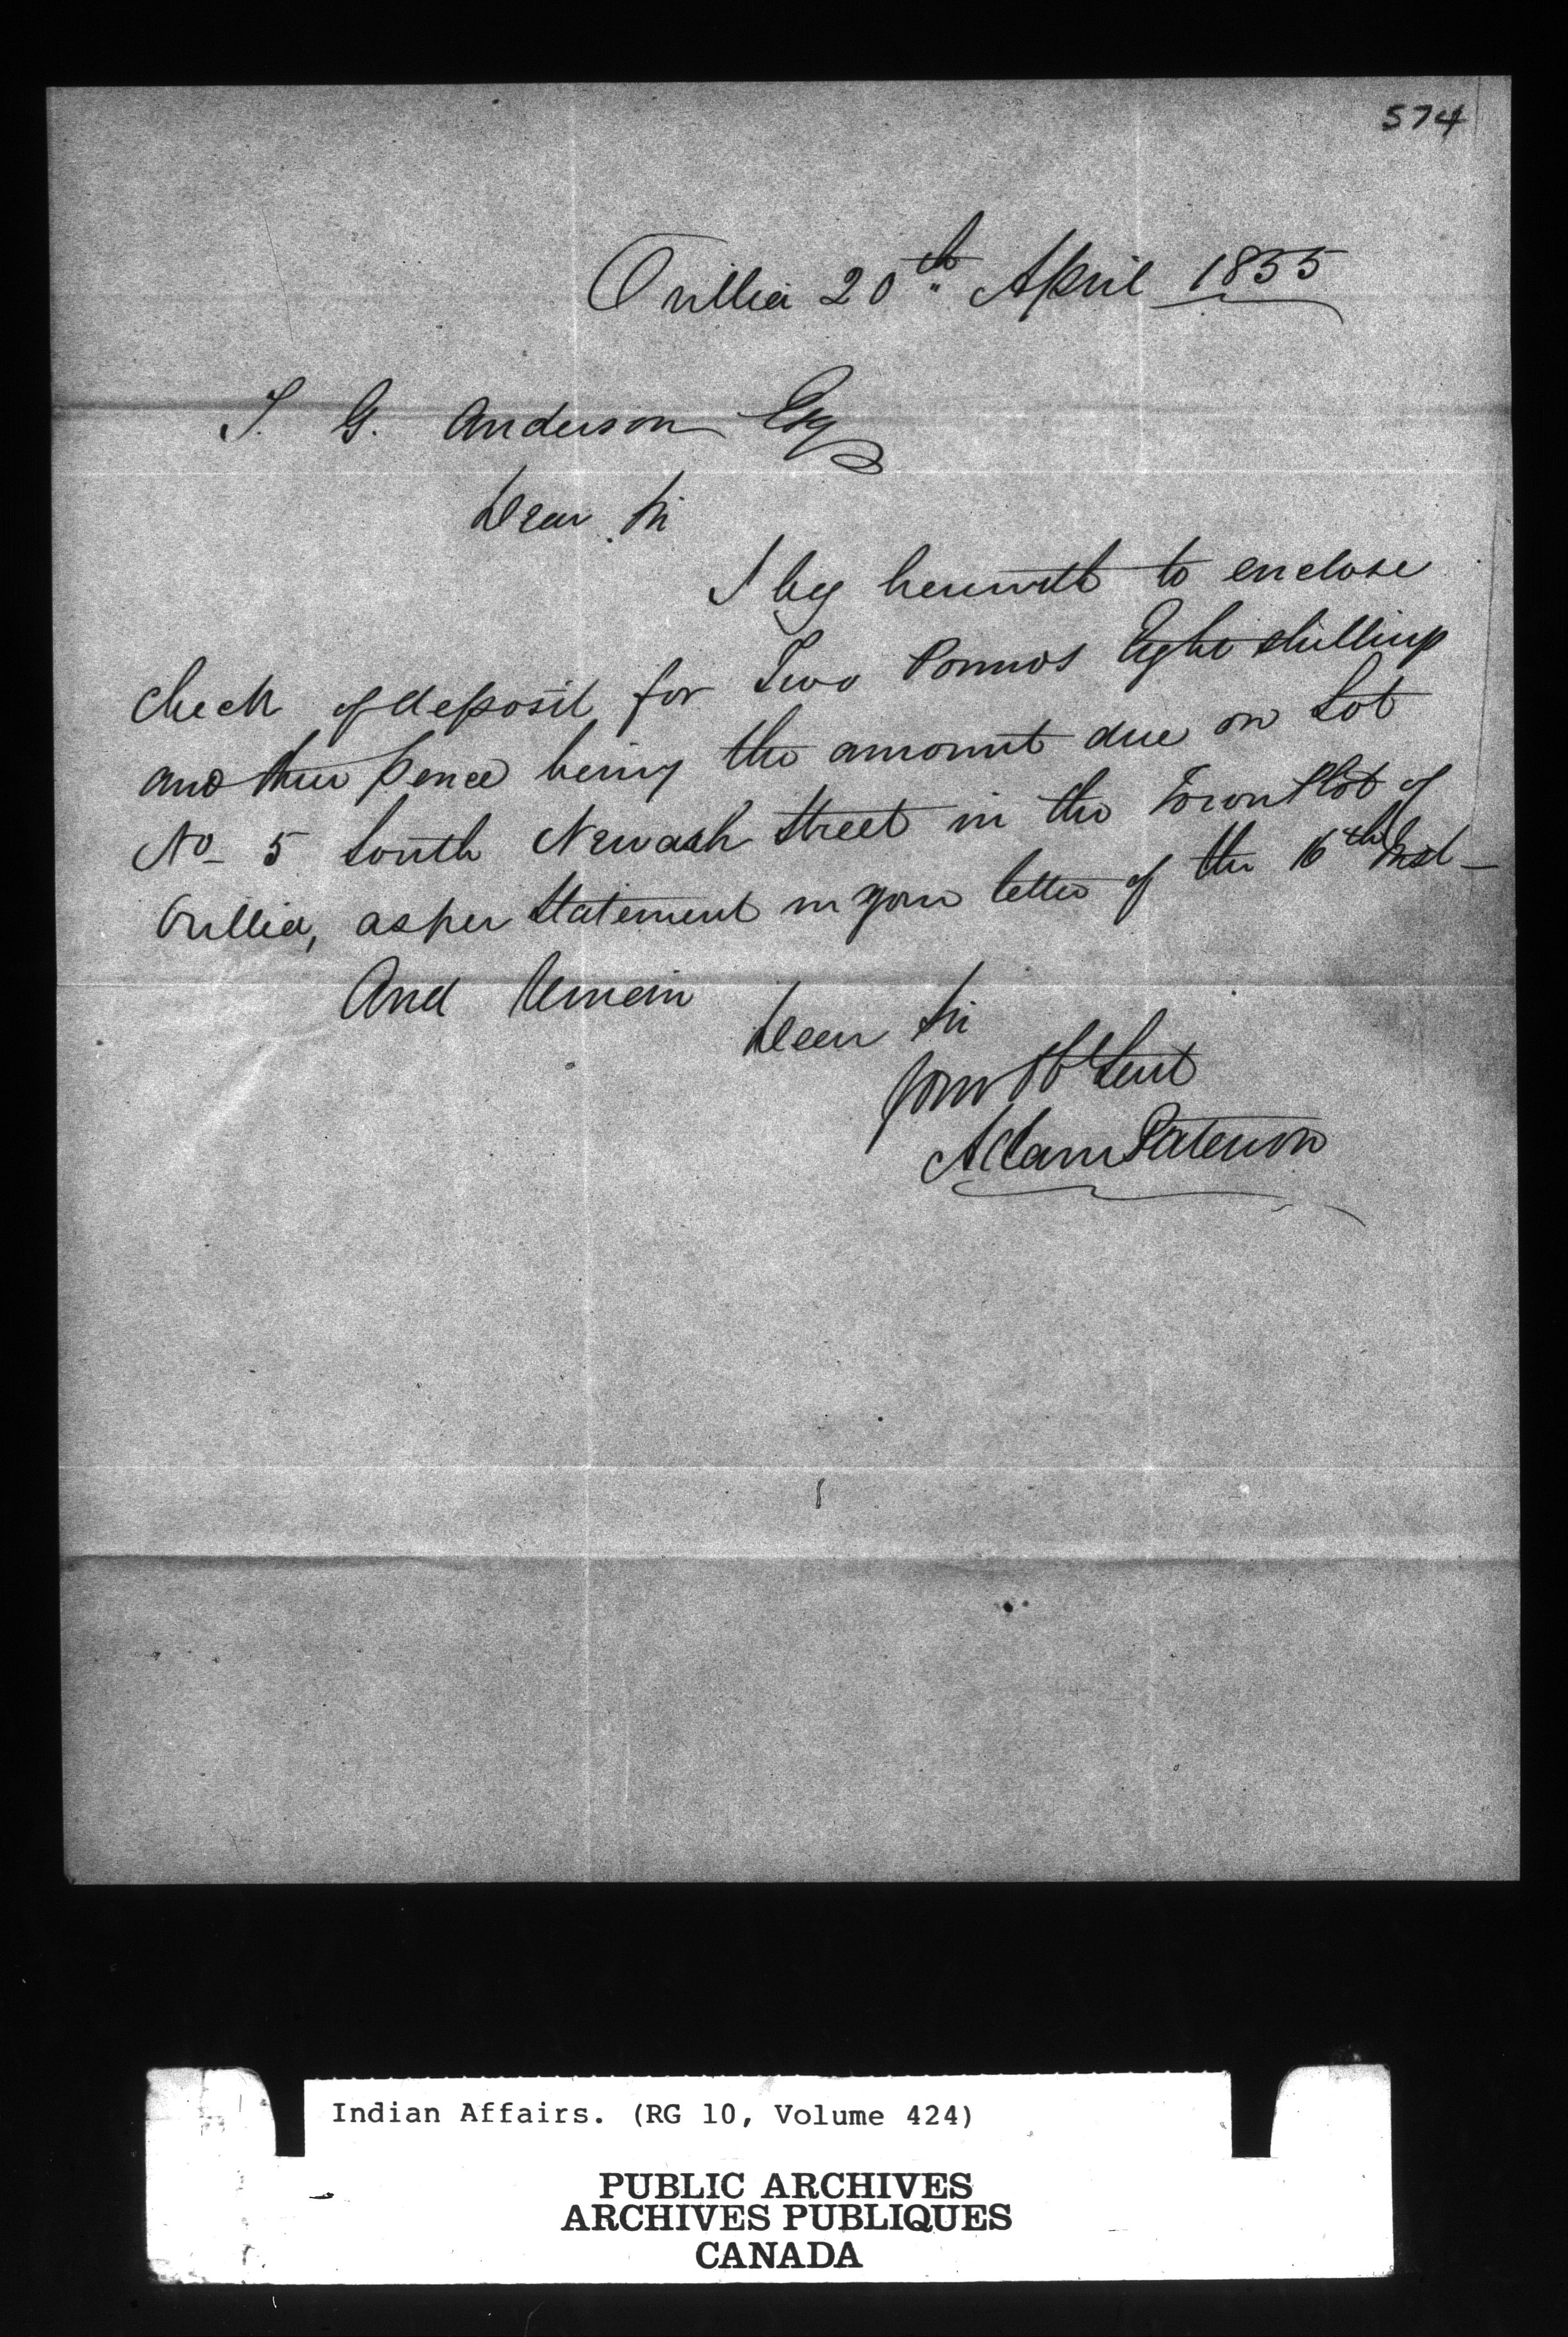 574
Orillia 20th April 1855
T. G. Anderson Esq
Dear Sir
I beg herewith to enclose
Check of deposit for Two Pounds Eight shillings
and three pence being the amount due on Lot
No 5 South Newash Street in the Town Plot of
Orillia, as per Statement in your letter of the 16th Inst -
And Remain
Dear Sir
Your Ob Servt
Adam Paterson
Indian Affairs. (RG 10, Volume 424)
PUBLIC ARCHIVES
ARCHIVES PUBLIQUES
CANADA